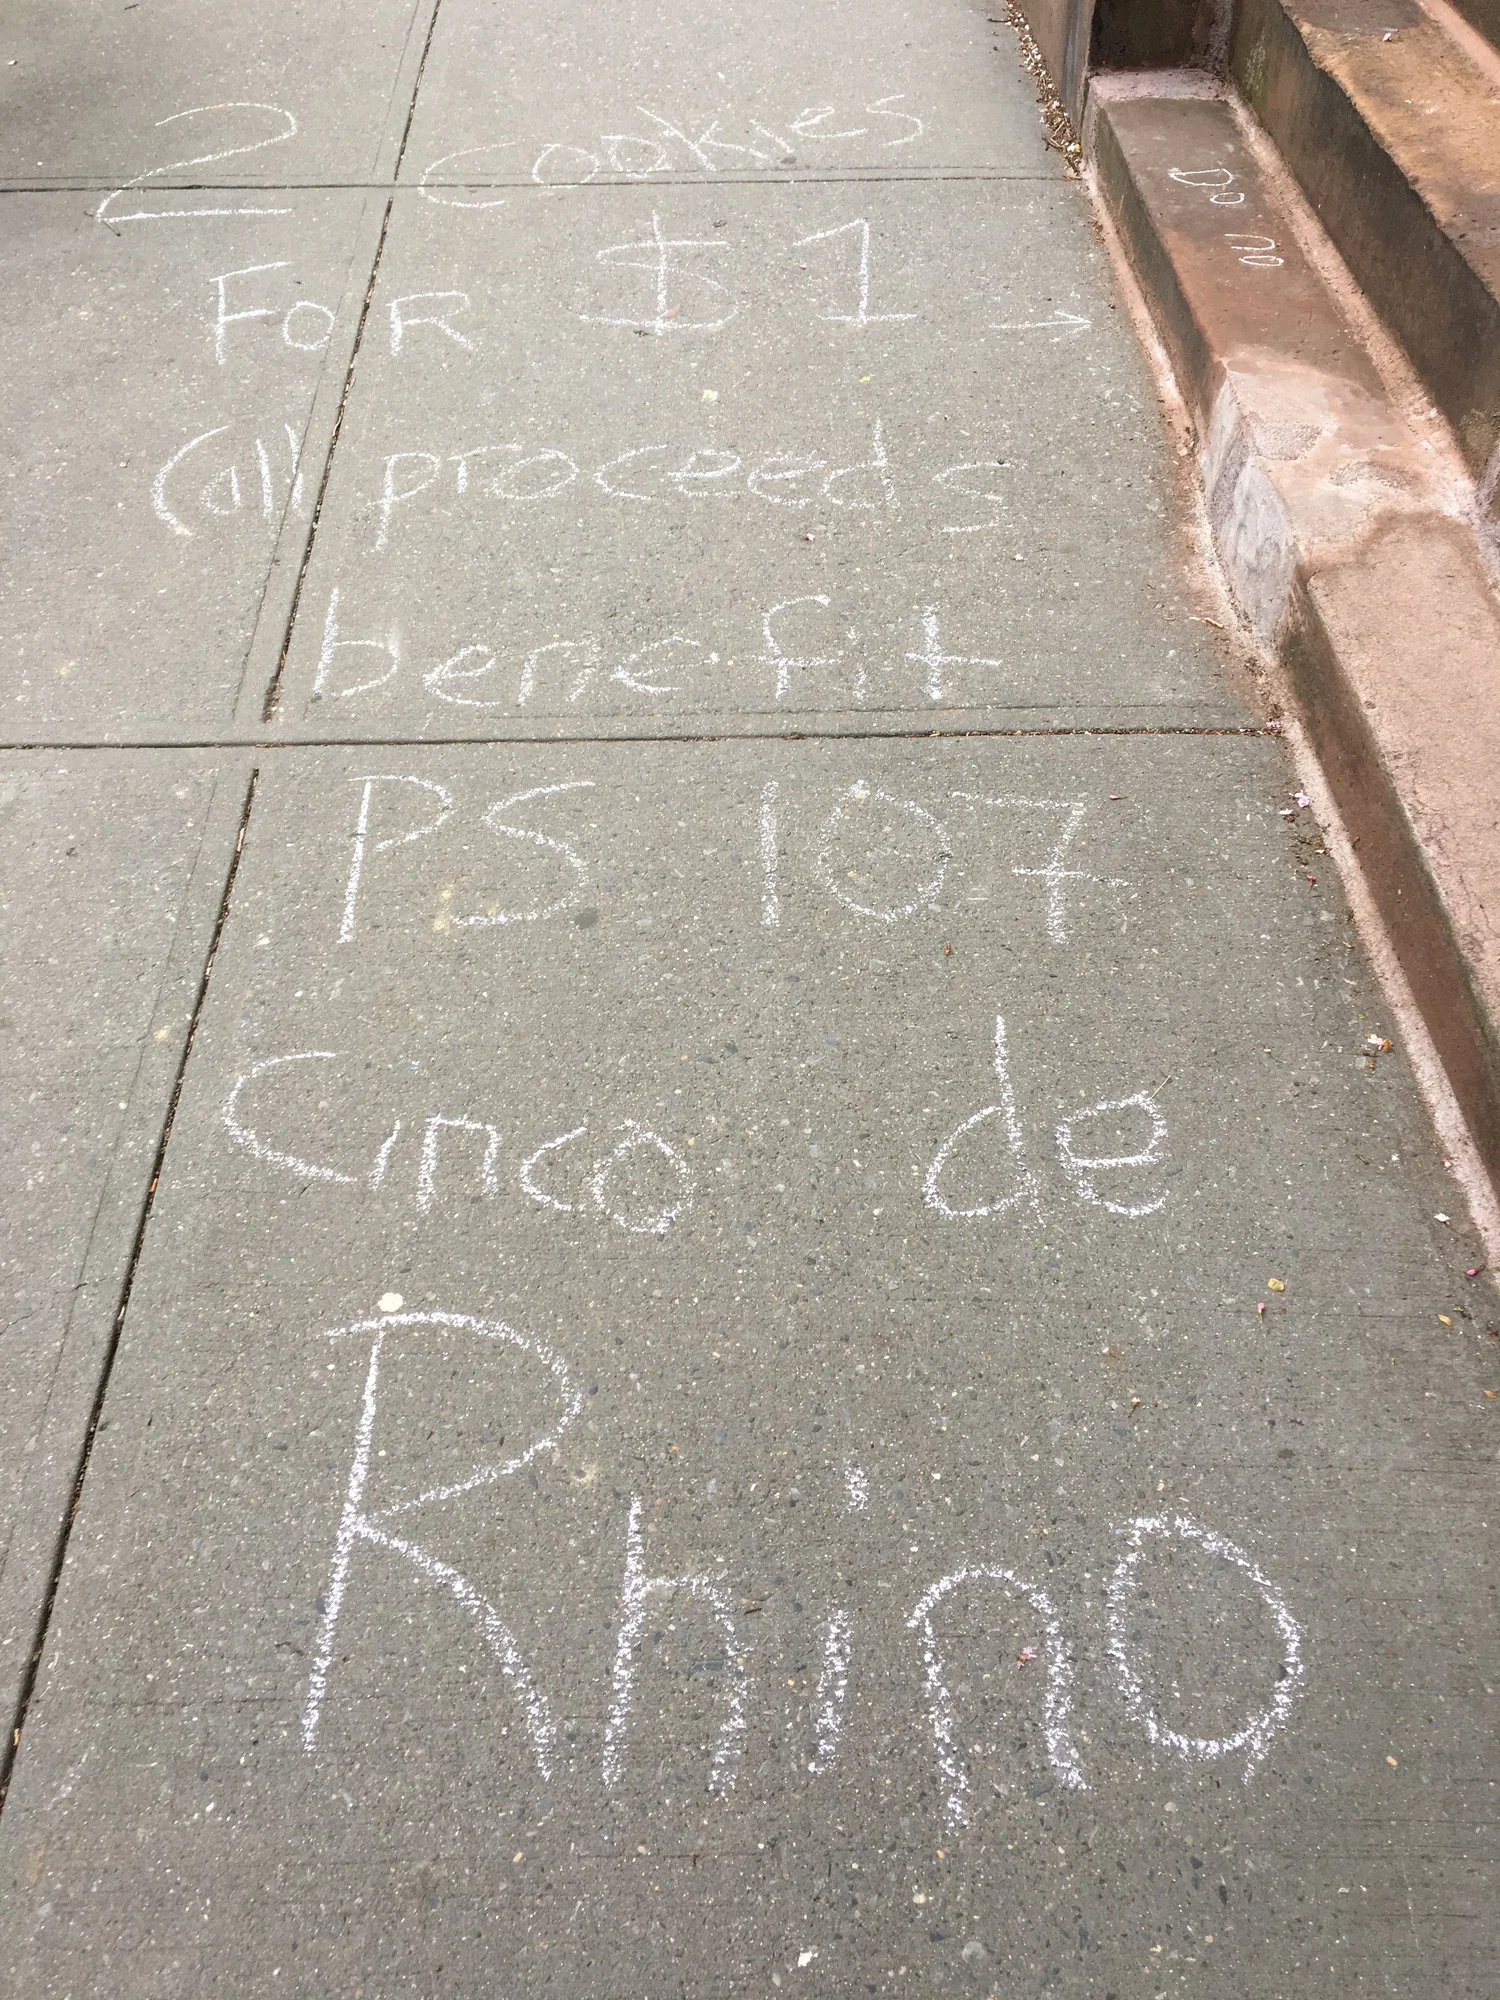 2 Cookies
FOR $1 →
(all proceeds
benefit
PS 107
Cinco de
Rhino